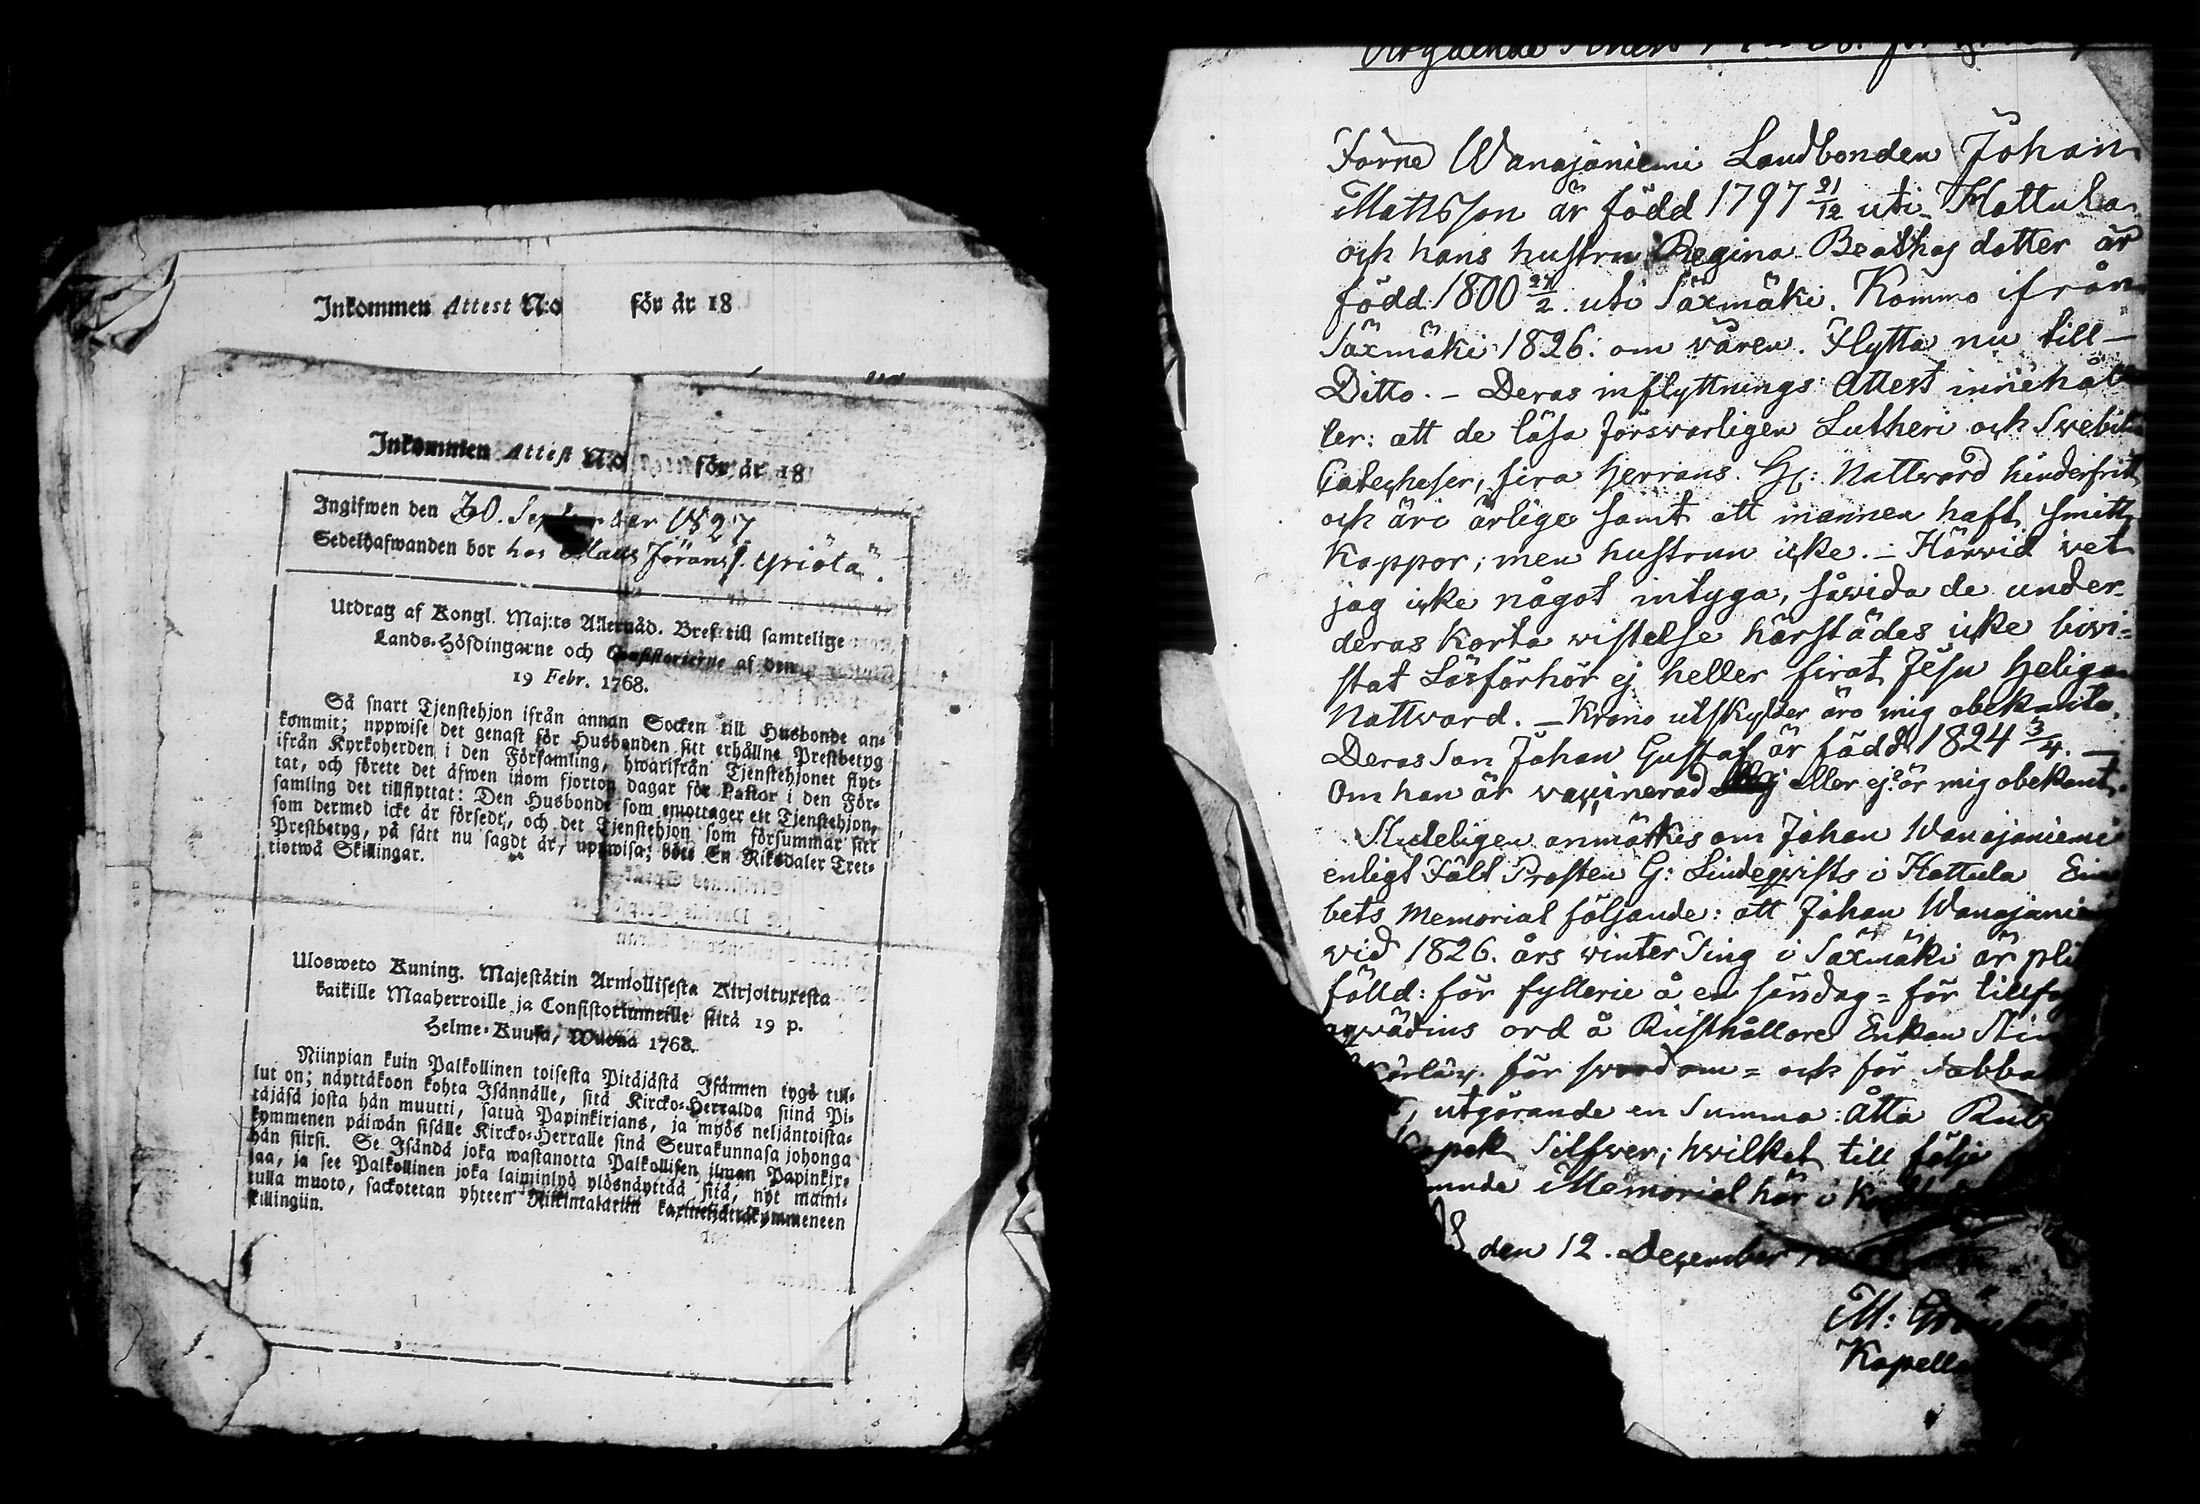 Inkommen Attest N:o för år 18
Inkommen Attest N:o för år 18
Ingifwen den 30. September 1827
Sedelhafwanden bor hos Jöransf. Yriölä.
Utdrag af Kongl. Maj:ts Allernåd. Bref till samtelige
Lands-Höfdingarne och Consistorierne af den
19 Febr. 1768.
Så snart Tjenstehjon ifrån annan Socken till Husbonde an-
kommit; uppwise det genast för Husbonden sitt erhållne Prestbetyg
ifrån Kyrkoherden i den Församling, hwarifrån Tjenstehjonet flyt-
tat, och förete det äfwen inom fjorton dagar för Pastor i den För-
samling det tillflyttat: Den Husbonde som emottager ett Tjenstehjon,
som dermed icke är försedt, och det Tjenstehjon som försummar sitt
Prestbetyg, på sätt nu sagdt är, uppwisa; böte En Riksdaler Tret-
tiotwå Skillingar.
Ulosweto Kuning. Majestätin Armollisesta Kirjoituxesta
kaikille Maaherroille ja Consistoriumeille siitä 19 p.
Helme-Kuusa, Wuonna 1768.
Niinpian kuin Palkollinen toisesta Pitäjästä Isännen tygö tul-
lut on; näyttäkoon kohta Isännälle, sitä Kircko-Herralda siinä Pi-
täjäsä josta hän muutti, saatua Papinkirjans, ja myös neljäntoista-
kymmenen päiwän sisälle Kircko-Herralle siinä Seurakunnasa johonga
hän siirsi. Se Isändä joka wastanotta Palkollisen ilman Papinkir-
jaa, ja see Palkollinen joka laiminlyö ylösnäyttää sitä, nyt maini-
tulla muoto, sackotetan yhteen Riikintalariin kaxineljättäkymmeneen
killingiin.
Förre Wanajäniemi Landbonden Johan
Mattsson är född 1797 21/12 uti Hattula
och hans hustru Regina Beathas dotter är
född 1800 27/2. uti Säxmäki. Kommo ifrån
Säxmäki 1826. om våren. Flytta nu till—
Ditto. — Deras inflyttnings Attest innehål
ler: att de läsa försvarligen Lutheri och Swebilii
Catecheser, fira Herrans H: Nattward hinderfritt
och äro ärlige samt att mannen haft smitt
Koppor; men hustrun icke. — Härvid vet
jag icke något intyga, såvida de under
deras korta vistelse härstädes icke bivi-
stat Läsförhör ej heller firat Jesu Heliga
Nattward. — Krono utskylder äro mig obekanta.
Deras Son Johan Gustaf är född 1824 3/4. —
Om han är vaccinerad eller ej: är mig obekant.
Sluteligen anmärkes om Johan Wanajäniemi
enligt Fält Prosten G: Lindeqvists i Hattula Em
bets Memorial följande: att Johan Wanajänie
vid 1826. års winter Ting i Säxmäki är pli
fälld: för fylleri å en söndag = för tillfo
ord å Rusthållare Enkan Stin
för svordom = och för Sabba
, utgörande en Summa: åtta Rub
Silfwer; hvilket till följe
Memorial här i
den 12. December
M:
Kapell